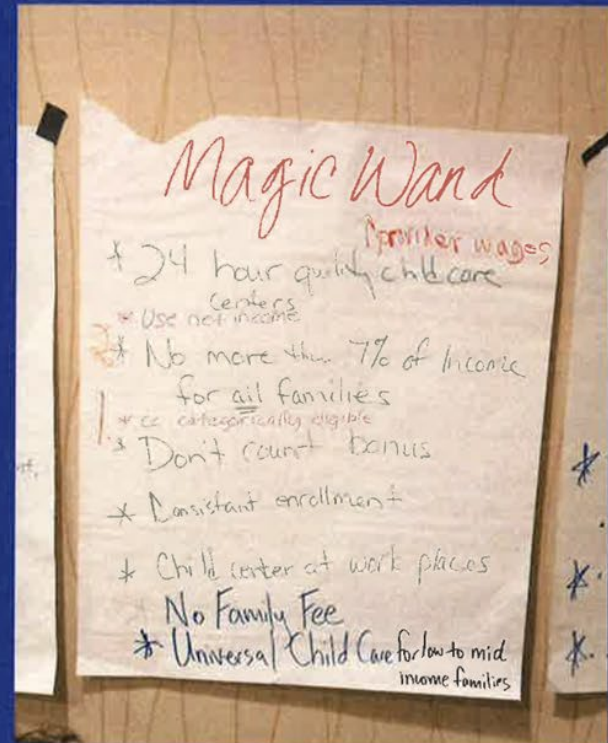 Magic Wand
↑provider wages
* 24 hour quality childcare
centers
* Use net income
* No more than 7% of Income
for all families
* cc categorically eligible
* Don't count bonus
* Consistant enrollment
* Child center at work places
No Family Fee
* Universal Child Care for low to mid
income families
*
*
*